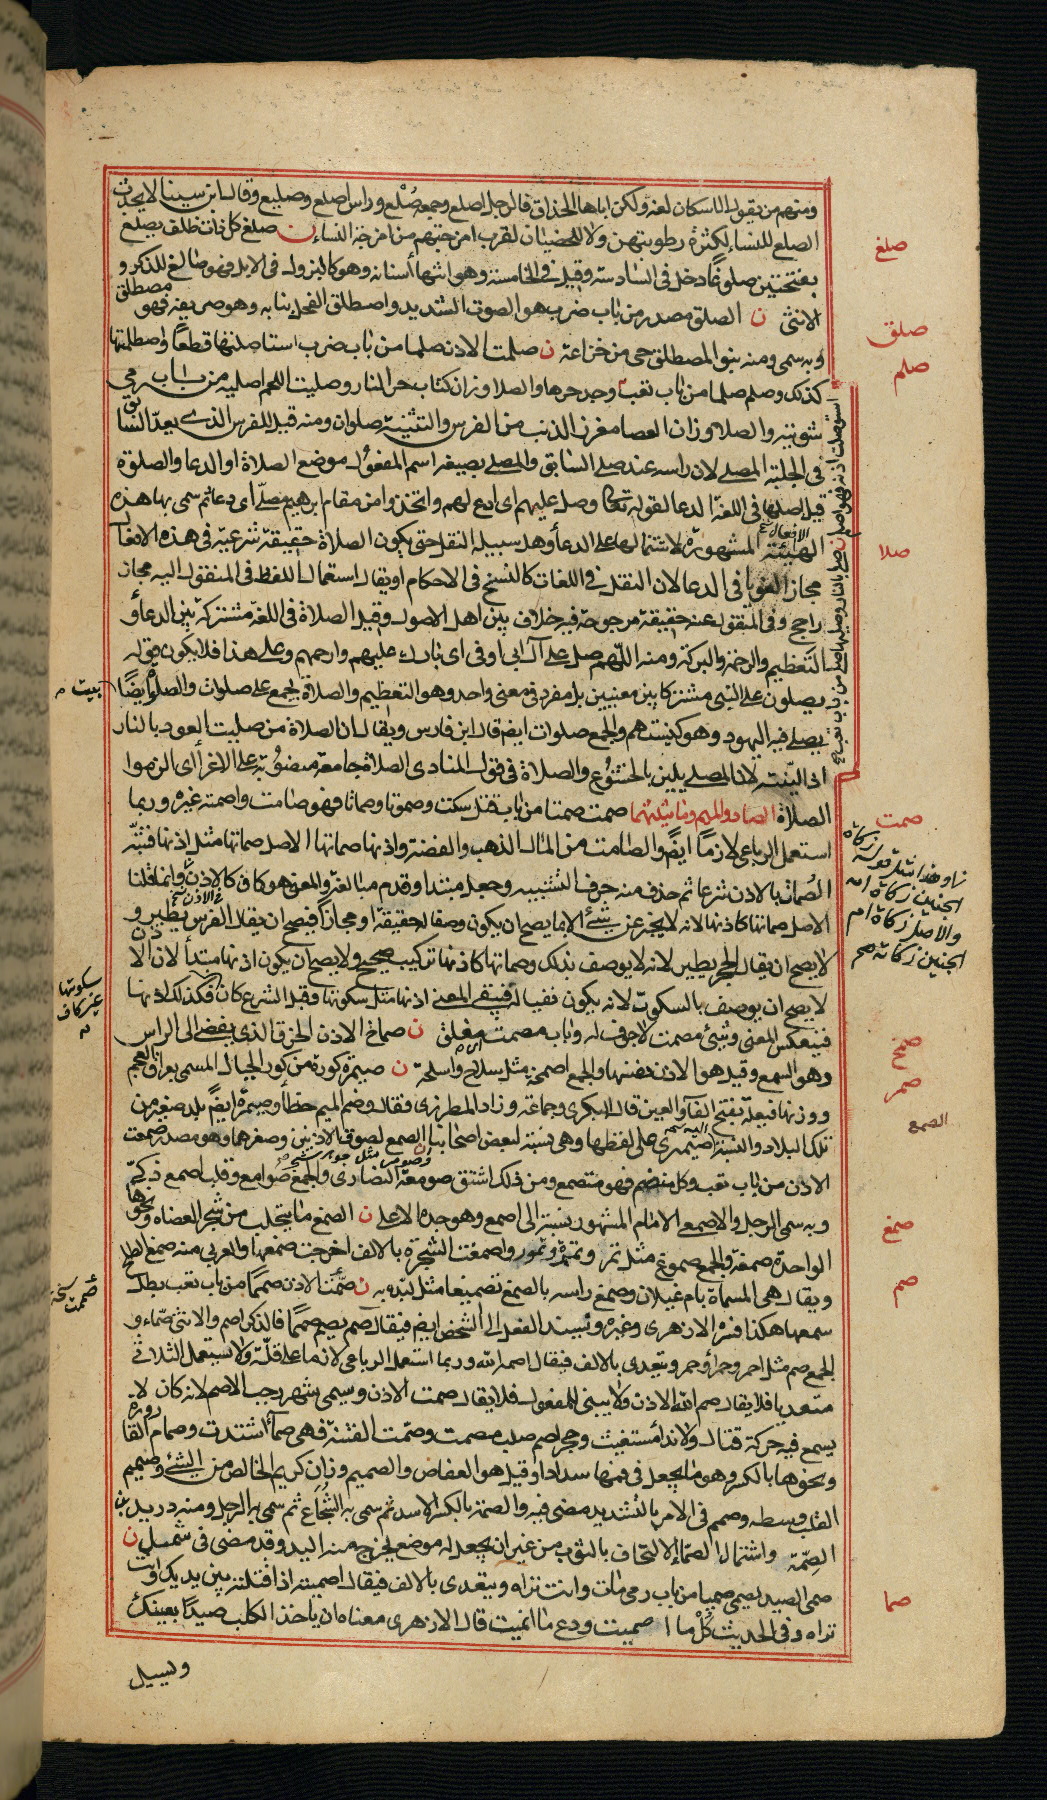 ومنهم من يقول بالاسكان لغة ولكن اباها الحذاق فالرجل اصلع وجمعه صُلْع وراس اصلع وصليع وقال ابن سينا لا يحدث
الصلع للنساء لكثرة رطوبتهن ولا للخصيان لقرب امزجتهم من امزجة النساء ن صلغ كل ذات ظلف يصلغ
بفتحتين صلوغا دخل فى السادسة وقيل فى الخامسة وهو انتهاء أسنانه وهو كالبزول فى الابل فهو صالغ للذكر و
الانثى ن الصلق مصدر من باب ضرب هو الصوت الشديد واصطلق الفحل بنابه وهو صريفه فهو مصطلق
وبه سمى ومنه بنو المصطلق حى من خزاعة ن صلمت الاذن صلما من باب ضرب استاصلتها قطعًا واصطلمتها
كذلك وصلم صلما من باب تعب وجد حرها والصلا وزان كتاب حر النار وصليت اللحم اصليه من باب رمى
شويته والصلا وزان العصا مغرز الذنب من الفرس والتثنية صلوان ومنه قيل للفرس الذى بعد السابق
فى الحلبة المصلى لان راسه عند صلى السابق والمصلى بصيغة اسم المفعول موضع الصلاة او الدعا والصلوة
قيل اصلها فى اللغة الدعا لقوله تعالى وصل عليهم اى ادع لهم واتخذوا من مقام ابرهيم مصلّى اى دعا ثم سمى بها هذه
الهيئة المشهورة لاشتمالها على الدعأ وهل سبيله النقل حتى يكون الصلاة حقيقة شرعية فى هذه الافعال
مجازا لغويا فى الدعا لان النقل فى اللغات كالنسخ فى الاحكام او يقال استعمال اللفظ فى المنقول اليه مجاز
راجح وفى المنقول عنه حقيقة مرجوحة فيه خلاف بين اهل الاصول وقيل الصلاة فى اللغة مشتركة بين الدعأ و
التعظيم والرحمة والبركة ومنه اللهم صل على آل ابى اوفى اى بارك عليهم وارحمهم وعلى هذا فلا يكون قوله
يصلون على النبى مشتركا بين معنيين بل مفرد فى معنى واحد وهو التعظيم والصلاة يجمع على صلوات والصلوة ايضًا
يصلى فيه اليهود وهو كنيستهم والجمع صلوات ايضا قال ابن فارس ويقال ان الصلاة من صليت العود بالنار
اذا لينته لان المصلى يلين بالخشوع والصلاة فى قول المنادى الصلاة جامعة منصوبة على الاغرأ اى الزموا
الصلاة الصاد والميم وما يثلثهما صمت صمتا من باب قتل سكت وصموتا وصماتا فهو صامت واصمته غيره وربما
استعمل الرباعى لازمًا ايضًا والصامت من المال الذهب والفضة واذنها صماتها الاصل صماتها مثل اذنها فشبه
الصُمات بالاذن شرعا ثم حذف منه حرف التشبيه وجعل مبتدا وقدم مبالغة والمعنى هو كاف كالاذن وانما قلنا
الاصل صماتها كاذنها لانه لا يخبر عن شئ الا بما يصح ان يكون وصفا له حقيقة او مجازًا فيصح ان يقال الفرس يطير و
لا يصح ان يقال الحجر يطير لانه لا يوصف بذلك وصماتها كاذنها تركيب صحيح ولا يصح ان يكون اذنها مبتدأ لان الاذن
لا يصح ان يوصف بالسكوت لانه يكون نفيا له فيبقى المعنى اذنها مثل سكوتها وقبل الشرع كان فكذلك اذنها
فينعكس المعنى وشئ مصمت لا جوف له وباب مصمت مغلق ن صماخ الاذن الخرق الذى يفضى الى الراس
وهو السمع وقيل هو الاذن نفسها والجمع اصمخة مثل سلاح واسلحة ن صيمرة كورة من كور الجبال المسمى بعراق العجم
ووزنها فيعلة بفتح الفآ والعين قال البكرى وجماعة وزاد المطرزى فقال وضم الميم خطأ وصيمرة ايضًا بلد صغير من
تلك البلاد والنسبة صيمرى على لفظها وهى نسبة لبعض اصحابنا الصمع لصوق الاذنين وصغرهما وهو مصدر صمعت
الاذن من باب تعب وكل منضم فهو متصمع ومن ذلك اشتق صومعة النصارى والجمع صوامع وقلب اصمع ذكى
وبه سمى الرجل والاصمعى الامام المشهور نسبة الى اصمع وهو جده الاعلى ن الصمغ ما يتحلب من شجر العضاه ونحوها
الواحدة صمغة والجمع صموغ مثل تمر وتمرة وتمور واصمغت الشجرة بالالف اخرجت صمغها والعربى منه صمغ الطلح
ويقال هى المسماة بام غيلان وصمغ راسه بالصمغ تصميغا مثل لبده به ن صمّت الاذن صممًا من باب تعب بطل
سمعها هكذا فسره الازهرى وغيره ويسند الفعل الى الشخص ايضا فيقال صم يصم صممًا فالذكر اصم والانثى صمّاء و
الجمع صم مثل احمر وحمرأ وحمر ويتعدى بالالف فيقال اصمه الله وربما استعمل الرباعى لازما على قلّة ولا يستعمل الثلاثى
متعديا فلا يقال صم الله الاذن ولا يبنى للمفعول فلا يقال صمت الاذن ويسمى شهر رجب الاصم لانه كان لا
يسمع فيه حركة قتال ولا ندأ مستغيث وحجر اصم صلب مصمت وصمت الفتنة فهى صمأ اشتدت وصمام القارورة
ونحوها بالكسر وهو ما يجعل فى فمها سدادا وقيل هو العفاص والصميم وزان كريم الخالص من الشئ وصميم
القلب وسطه وصمم فى الامر بالتشديد مضى فيه والصمة بالكسر الاسد ثم سمى به الشجاع ثم سمى به الرجل ومنه دريد بن
الصِّمة واشتمال الصمّاء الالتحاف بالثوب من غير ان يجعل له موضع يخرج منه اليد وقد مضى فى شمل ن
صمى الصيد يصمى صميا من باب رمى مات وانت تراه ويتعدى بالالف فيقال اصميته اذا قتلته بين يديك وانت
تراه وفى الحديث كُلْ ما اصميت ودع ما انميت قال الازهرى معناه ان ياخذ الكلب صيدًا بعينك
ويسيل
صلغ
صلق
صلم
صلا
صمت
زاد هذا مثل قوله زكاة
الجنين زكاة امه
والاصل زكاة ام
الجنين زكاته صح
صمخ
صمر
الصمع
صمغ
صمم
صما
بيت
سكوتها
غير كاف
صممت نسخة